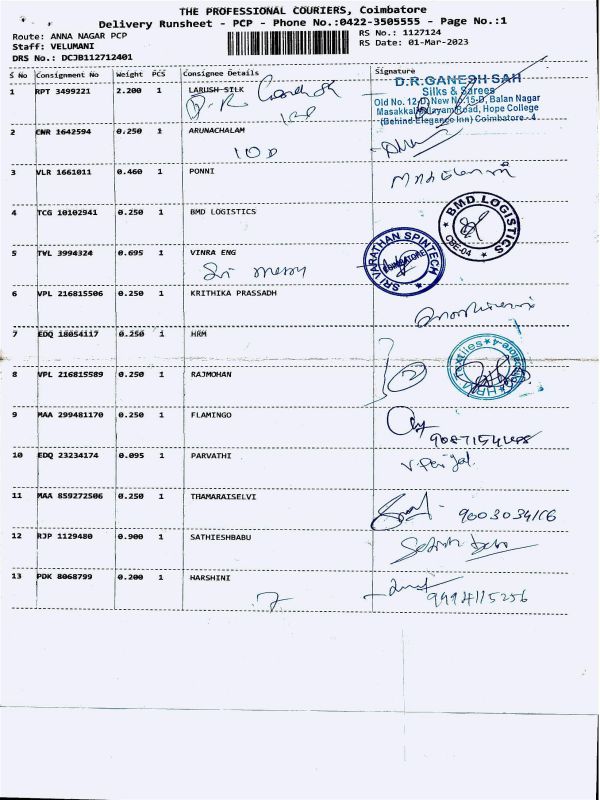 THE PROFESSIONAL COURIERS, Coimbatore
Delivery Runsheet - PCP - Phone No.:0422-3505555 - Page No.:1
Route: ANNA NAGAR PCP
Staff: VELUMANI
DRS No.: DCJB112712401
RS No.: 1127124
RS Date: 01-Mar-2023
S No Consignment No Weight PCS Consignee Details Signature
1 RPT 3499221 2.200 1 LARUSH SILK
D.R.GANESH SAH
Silks & Sarees
Old No. 12-D, New No.15-D, Balan Nagar
Masakkalipalayam Road, Hope College
(Behind Elegance Inn) Coimbatore - 4
2 CNR 1642594 0.250 1 ARUNACHALAM
3 VLR 1661011 0.460 1 PONNI
4 TCG 10102941 0.250 1 BMD LOGISTICS
BMD LOGISTICS
CBE-04
5 TVL 3994324 0.695 1 VINRA ENG
SRI VARATHAN SPINTECH
COIMBATORE
6 VPL 216815506 0.250 1 KRITHIKA PRASSADH
7 EDQ 18054117 0.250 1 HRM
HRM Textiles
8 VPL 216815589 0.250 1 RAJMOHAN
2
9 MAA 299481170 0.250 1 FLAMINGO
10 EDQ 23234174 0.095 1 PARVATHI
11 MAA 859272506 0.250 1 THAMARAISELVI
12 RJP 1129480 0.900 1 SATHIESHBABU
13 PDK 8068799 0.200 1 HARSHINI
9994115256